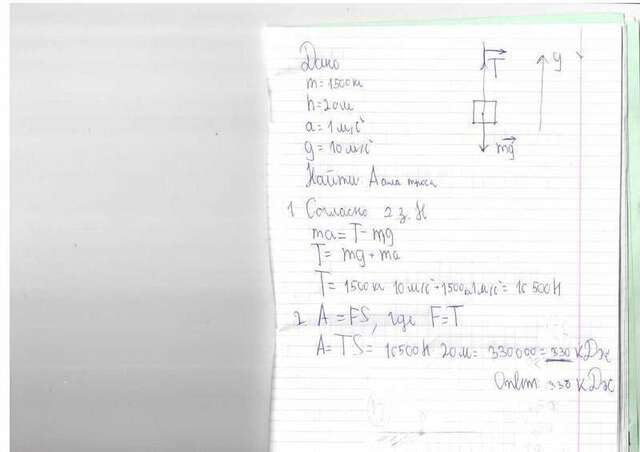 Дано
m = 1500кг
h = 20м
a = 1 м/с²
g = 10 м/с²
T
y
mg
Найти A силы троса
1 Согласно 2 з. Н
ma = T - mg
T = mg + ma
T = 1500кг 10 м/с² + 1500кг 1 м/с² = 16500Н
2. A = FS, где F = T
A = TS = 16500Н 20м = 330000 = 330 кДж
Ответ 330 кДж